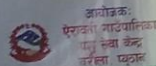 आयोजकः
ऐरावती गाउँपालिका
पशु सेवा केन्द्र